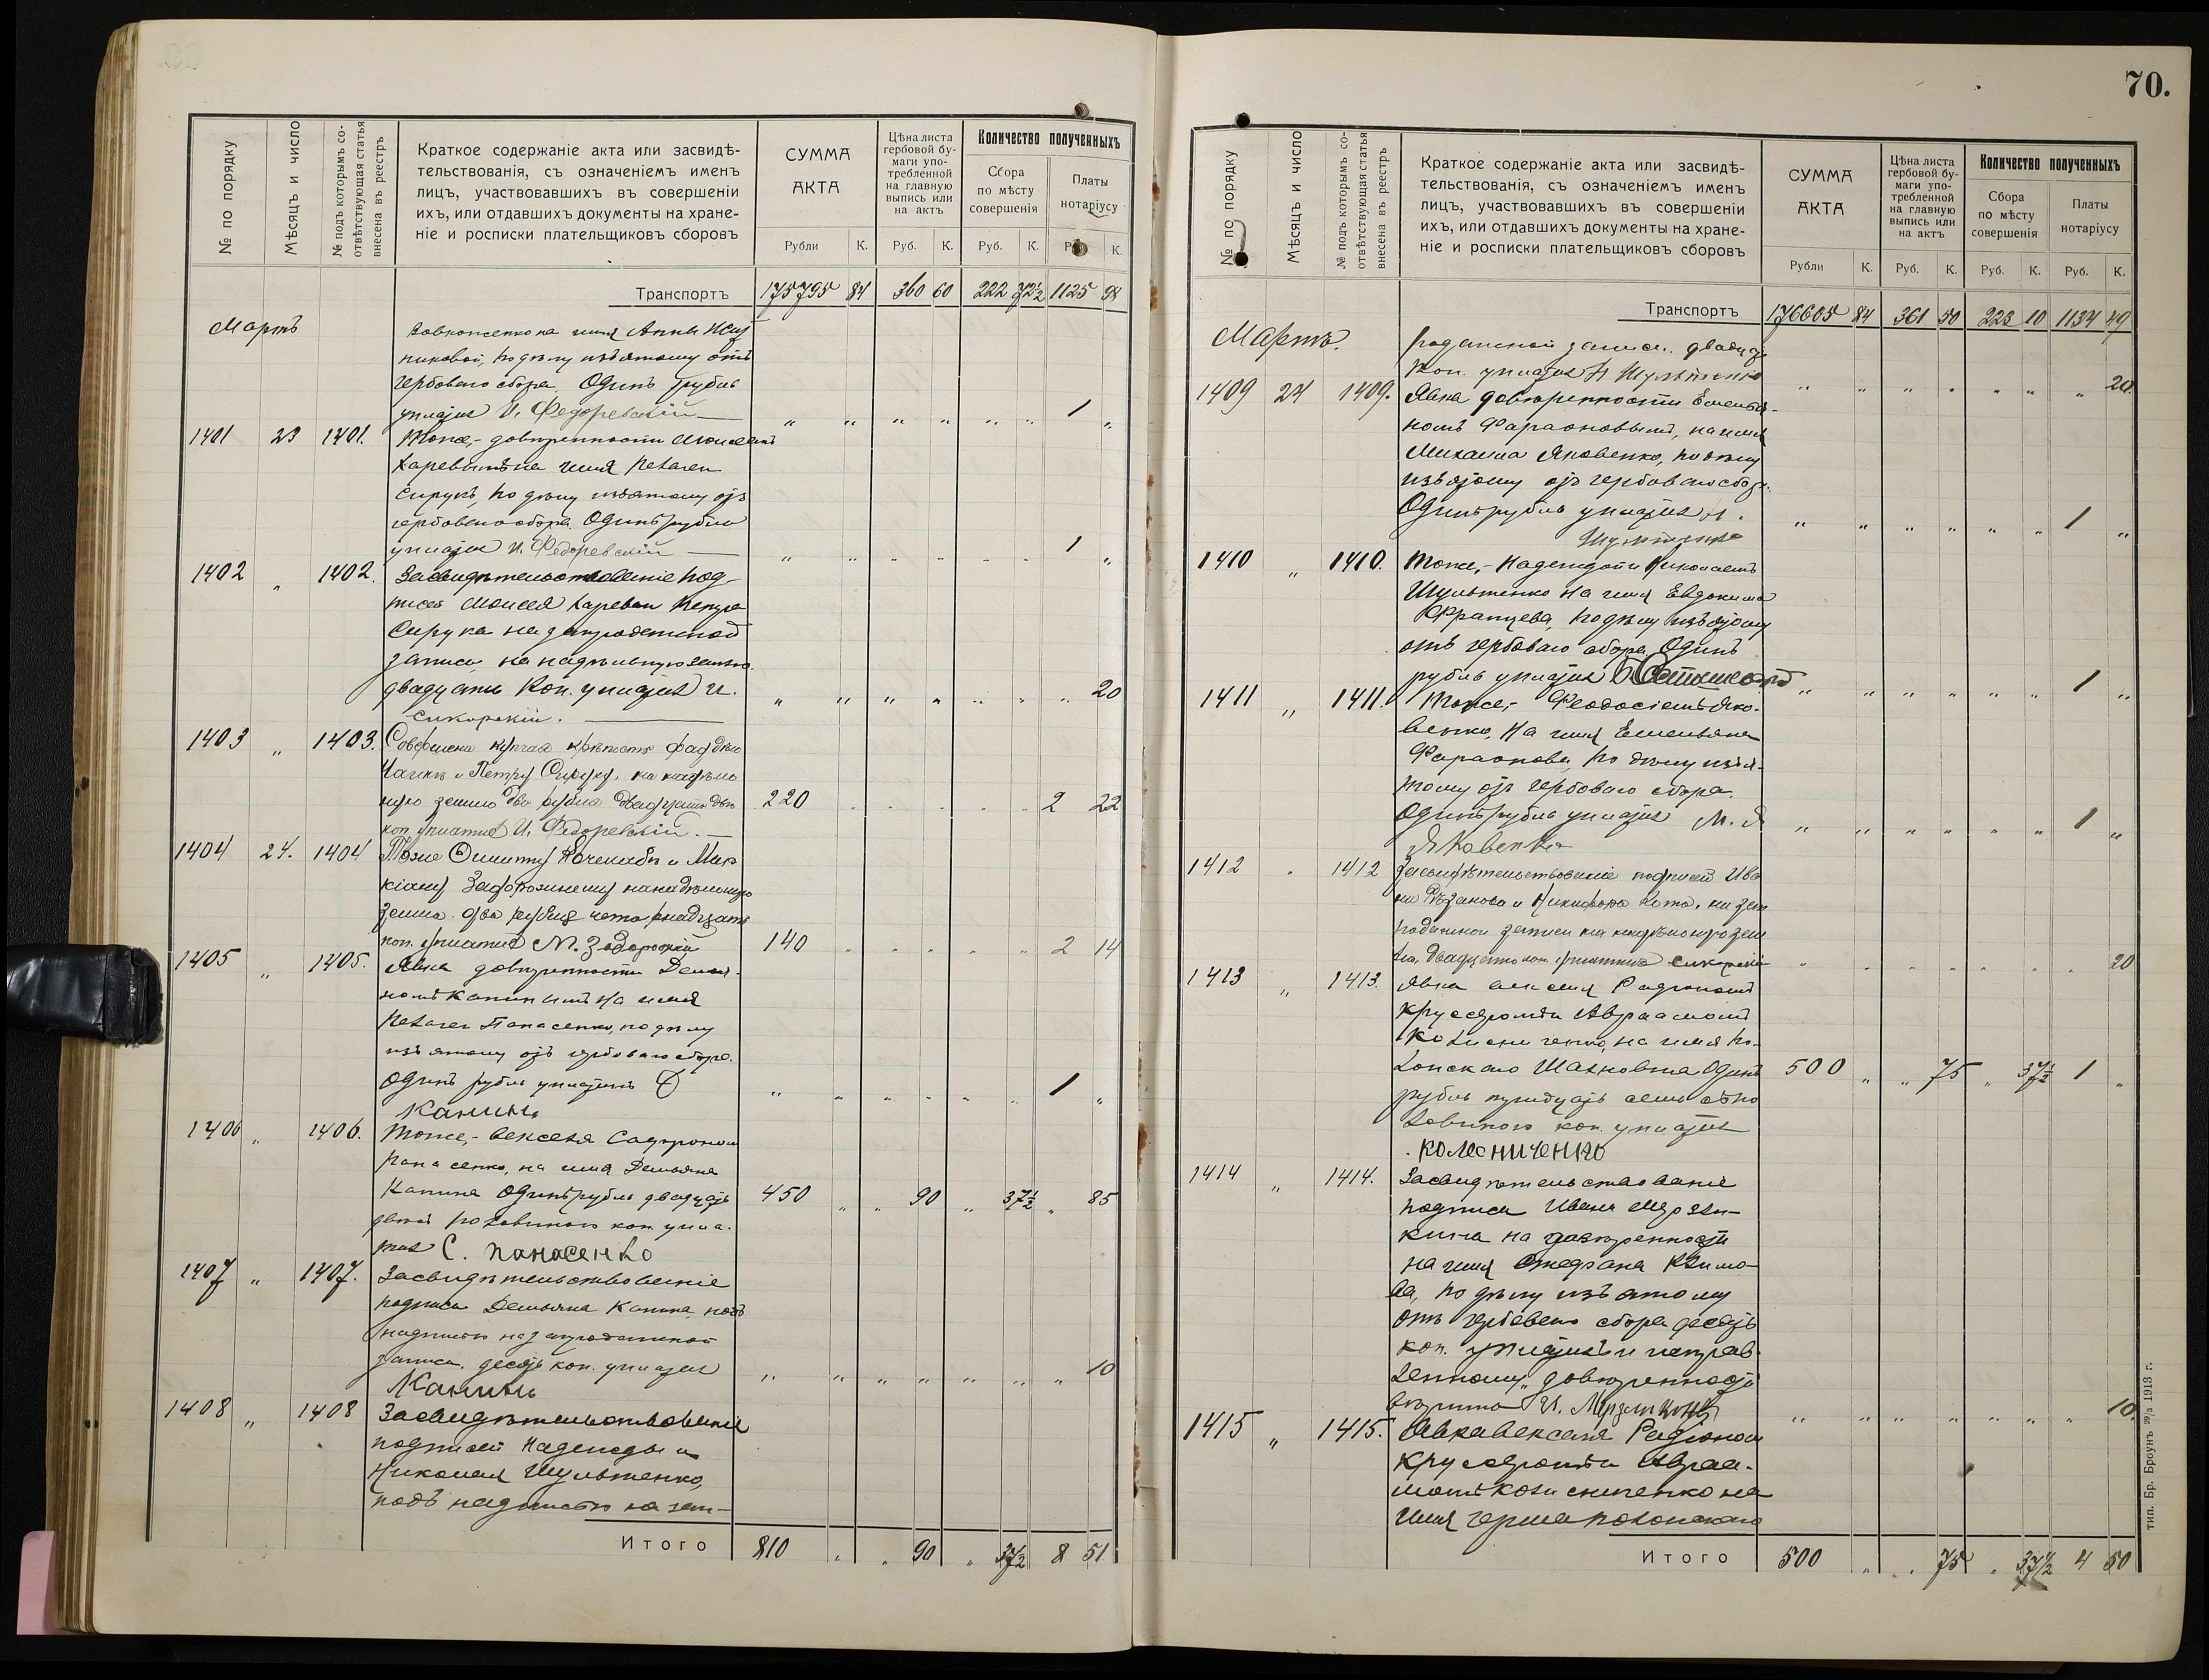 № по порядку
Мѣсяцъ и число
№ подъ которымъ со-
отвѣтствующая статья
внесена въ реестръ
Краткое содержаніе акта или засвидѣ-
тельствованія, съ означеніемъ именъ
лицъ, участвовавшихъ въ совершеніи
ихъ, или отдавшихъ документы на хране-
ніе и росписки плательщиковъ сборовъ
СУММА
АКТА
Рубли К.
Цѣна листа
гербовой бу-
маги упо-
требленной
на главную
выпись или
на актъ
Руб. К.
Количество полученныхъ
Сбора
по мѣсту
совершенія
Руб. К.
Платы
нотаріусу
К.
Транспортъ 175795 84 360 60 222 72½ 1125 98
Мартъ
на имя Анны
пиковой, по дѣлу изъятому отъ
гербоваго сбора. Одинъ рубль
уплатилъ И. Федоревскій 1 "
1401 23 1401. Тоже,- довѣренности Моисеемъ
Харевымъ на имя
Сирукъ, по дѣлу изъятому отъ
гербоваго сбора. Одинъ рубль
уплатилъ И. Федоревскій 1 "
1402 " 1402. Засвидѣтельствованіе под-
писей Моисея Харева и Петра
Сирука на запродажной
записи на надѣльную землю.
двадцать коп. уплатилъ И. 20
Сикорскій.
1403 " 1403. Совершена купчая крѣпость
и Петру Сируку, на надѣль
ную землю два рубля двадцать двѣ 220 2 22
коп. уплатилъ И. Федоревскій.
1404 24. 1404 Тоже
Задорожнему на надѣльную
землю два рубля четырнадцать
коп. уплатилъ М. Задорожній 140 2 14
1405 " 1405. Явка довѣренности Демья-
номъ Канинымъ на имя
Панасенко, по дѣлу
изъятому отъ гербоваго сбора.
Одинъ рубль уплатилъ Д 1 "
Канинъ
1406 " 1406. Тоже,- векселя Софроном
Панасенко, на имя Демьяна
Канина Одинъ рубль двадцать 450 " " 90 " 37½ " 85
двѣ съ половиною коп. упла-
тилъ С. Панасенко
1407 " 1407. Засвидѣтельствованіе
подписи Демьяна Канина, подъ
надписью на запродажной
записи. десять коп. уплатилъ 10
Канинъ
1408 " 1408 Засвидѣтельствованіе
подписей Надежды и
Николая Шульженко,
подъ надписью на зап-
Итого 810 " " 90 " 37½ 8 51
70.
№ по порядку
Мѣсяцъ и число
№ подъ которымъ со-
отвѣтствующая статья
внесена въ реестръ
Краткое содержаніе акта или засвидѣ-
тельствованія, съ означеніемъ именъ
лицъ, участвовавшихъ въ совершеніи
ихъ, или отдавшихъ документы на хране-
ніе и росписки плательщиковъ сборовъ
СУММА
АКТА
Рубли К.
Цѣна листа
гербовой бу-
маги упо-
требленной
на главную
выпись или
на актъ
Руб. К.
Количество полученныхъ
Сбора
по мѣсту
совершенія
Руб. К.
Платы
нотаріусу
Руб. К.
Транспортъ 176605 84 361 50 223 10 1134 49
Мартъ. родажной записи. двадцать
коп. уплатилъ Н Шульженко 20
1409 24 1409. Явка довѣренности Емелья-
номъ Фараоновымъ, на имя
Михаила Яковенко, по дѣлу
изъятому отъ гербоваго сбора.
Одинъ рубль уплатилъ Н. 1 "
Шульженко
1410 " 1410. Тоже,- Надеждой и Николаемъ
Шульженко на имя Евдокима
Францева, по дѣлу изъятому
отъ гербоваго сбора. Одинъ
рубль уплатилъ 1 "
1411 " 1411. Тоже,- Феодосіемъ Яко-
венко, на имя Емельяна
Фараонова, по дѣлу изъя-
тому отъ гербоваго сбора.
Одинъ рубль уплатилъ М. Я 1 "
Яковенко
1412 " 1412 Засвидѣтельствованіе подписей Ива
на Рѣзанова и Никифора на зап
родажной записи на надѣльную зем
лю, двадцать коп. уплатилъ Сикорскій 20
1413 " 1413. Явка векселя Радіономъ
и Авраамомъ
на имя По-
лонскаго Одинъ 500 " " 75 " 37½ 1 "
рубль тридцать семь съ по
ловиною коп. уплатилъ
Колесниченко
1414 " 1414. Засвидѣтельствованіе
подписи Ивана
кина на довѣренности
на имя Стефана Климо-
ва, по дѣлу изъятому
отъ гербоваго сбора десять
коп. уплатилъ и исправ-
ленному „довѣренность
И. 10.
1415 " 1415. Явка векселя Радіоном
и Авраа-
момъ на
имя Полонскаго
Итого 500 " " 75 " 37½ 4 50
тип. Бр. Броунъ 29/3 1913 г.